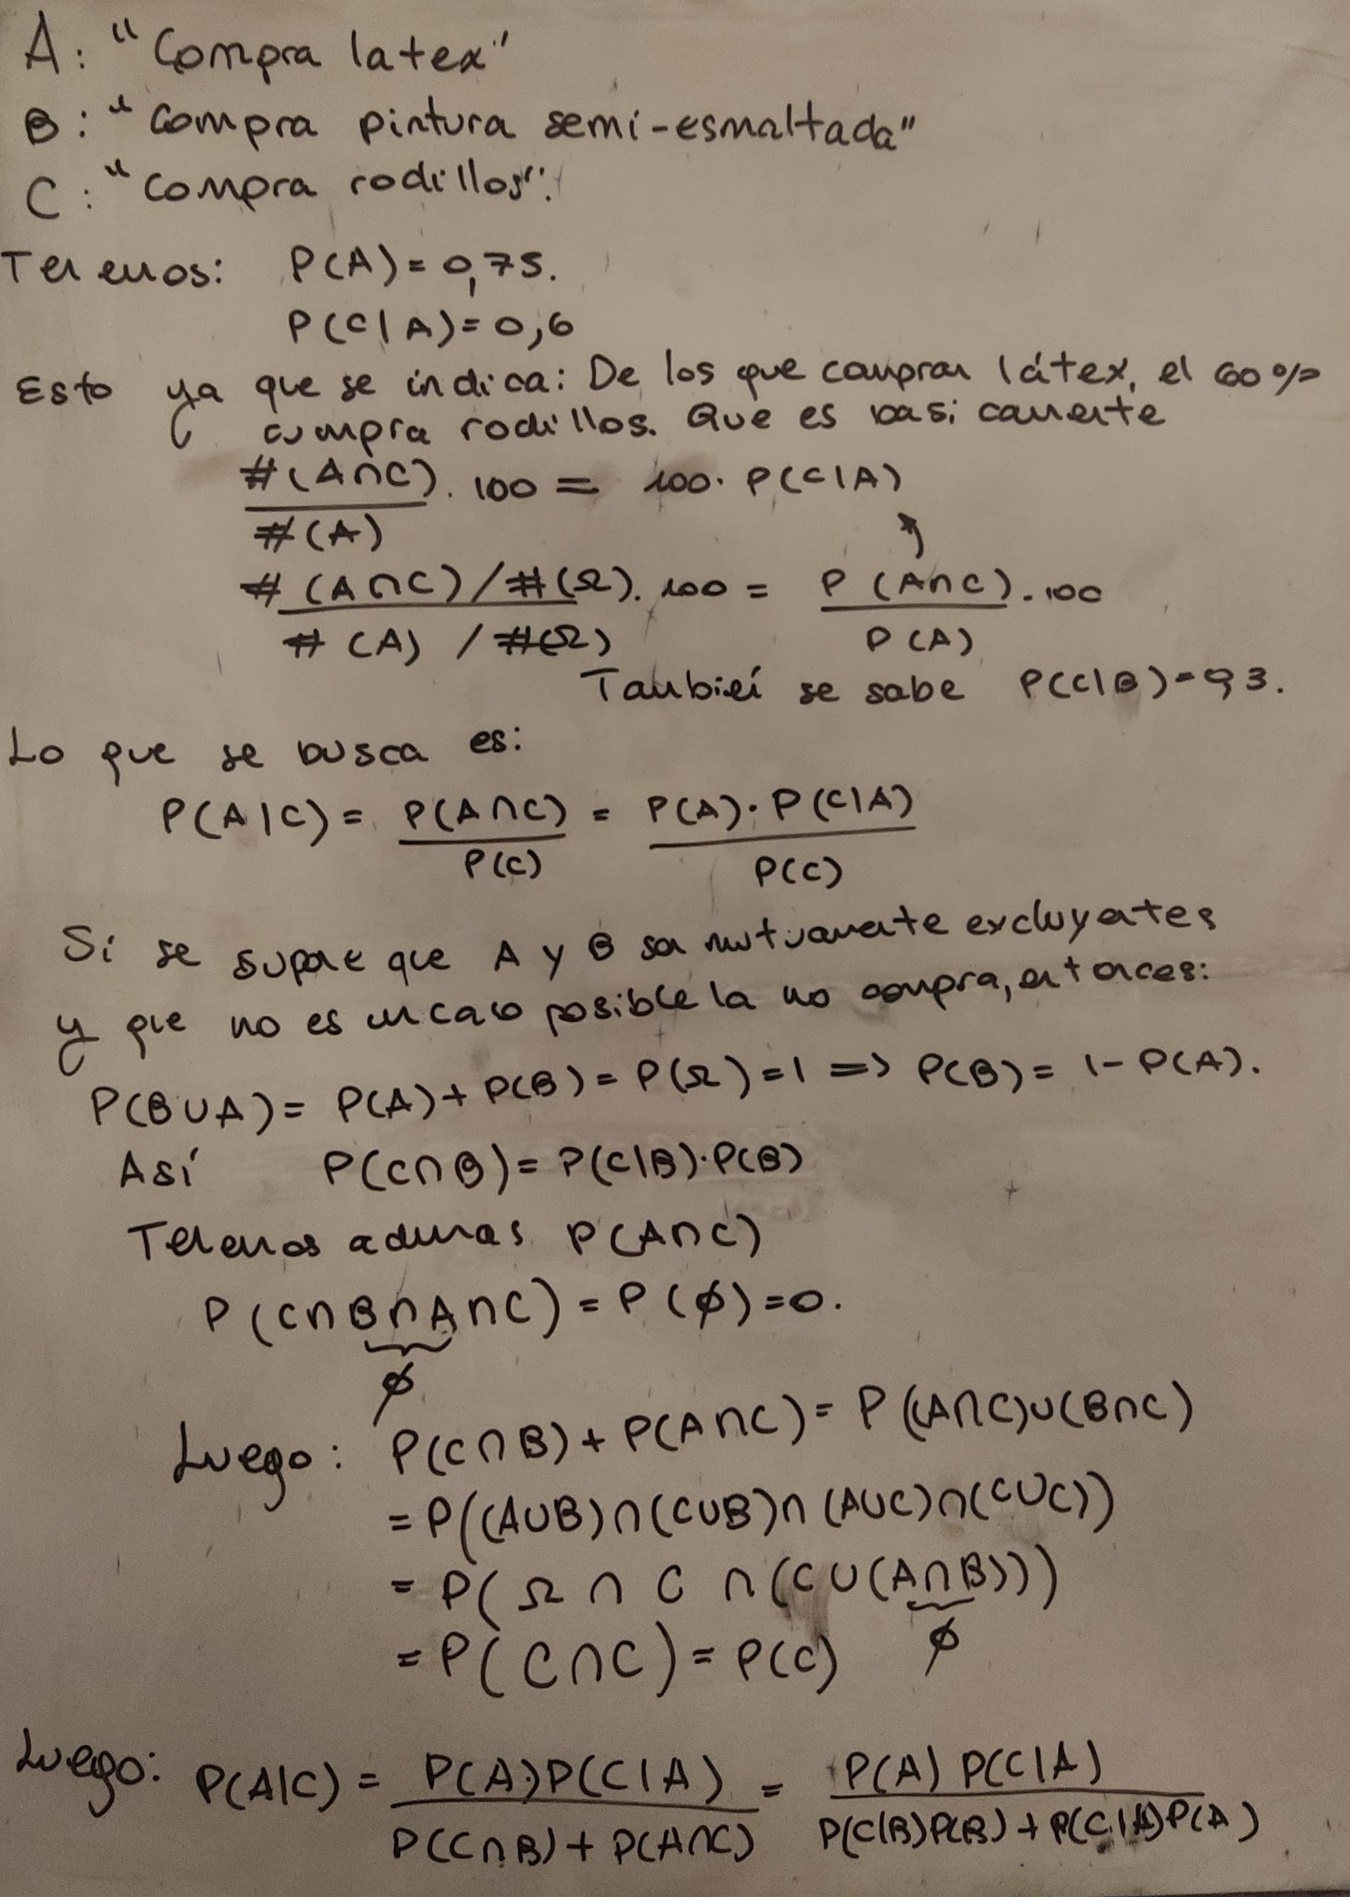 A: "Compra latex"
B: "compra pintura semi-esmaltada"
C: "compra rodillos".
Tenemos: P(A) = 0,75.
P(C|A) = 0,6
Esto ya que se indica: De los que compran látex, el 60%
compra rodillos. Que es basicamente
#(A∩C)/#(A) . 100 = 100. P(C|A)
#(A∩C)/#(Ω) / #(A)/#(Ω) . 100 = P(A∩C)/P(A) . 100
También se sabe P(C|B) = 0,3.
Lo que se busca es:
P(A|C) = P(A∩C)/P(C) = P(A)·P(C|A)/P(C)
Si se supone que A y B son mutuamente excluyentes
y que no es un caso posible la no compra, entonces:
P(B∪A) = P(A) + P(B) = P(Ω) = 1 => P(B) = 1 - P(A).
Así P(C∩B) = P(C|B)·P(B)
Tenemos ademas P(A∩C)
P(C∩B∩A∩C) = P(∅) = 0.
∅
Luego: P(C∩B) + P(A∩C) = P((A∩C)∪(B∩C)
= P((A∪B)∩(C∪B)∩(A∪C)∩(C∪C))
= P(Ω ∩ C ∩ (C∪(A∩B)))
∅
= P(C∩C) = P(C)
Luego: P(A|C) = P(A)P(C|A)/P(C∩B) + P(A∩C) = P(A) P(C|A)/P(C|B)P(B) + P(C|A)P(A)